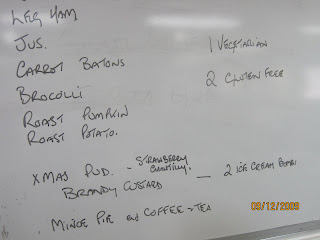 LEG HAM
JUS.
CARROT BATONS
BROCOLLI
ROAST PUMPKIN
ROAST POTATO.
1 VEGETARIAN
2 GLUTEN FREE
XMAS PUD. - STRAWBERRY
CHANTILLY.
BRANDY CUSTARD — 2 ICE CREAM
MINCE PIE and COFFEE - TEA